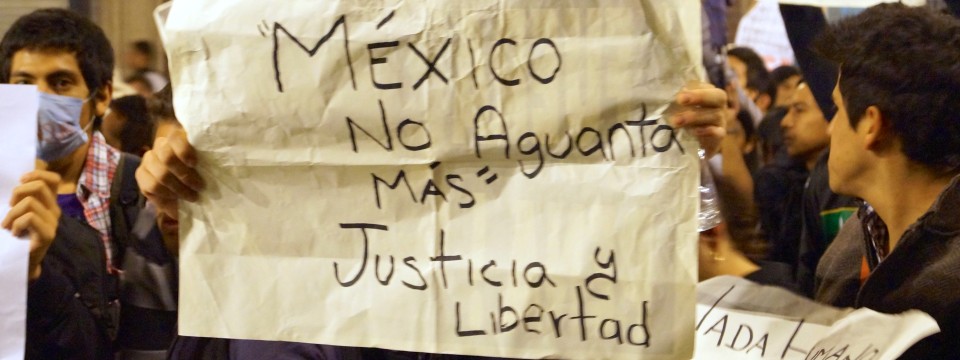 "MÉXICO
No Aguanta
MÁS"
Justicia y
Libertad